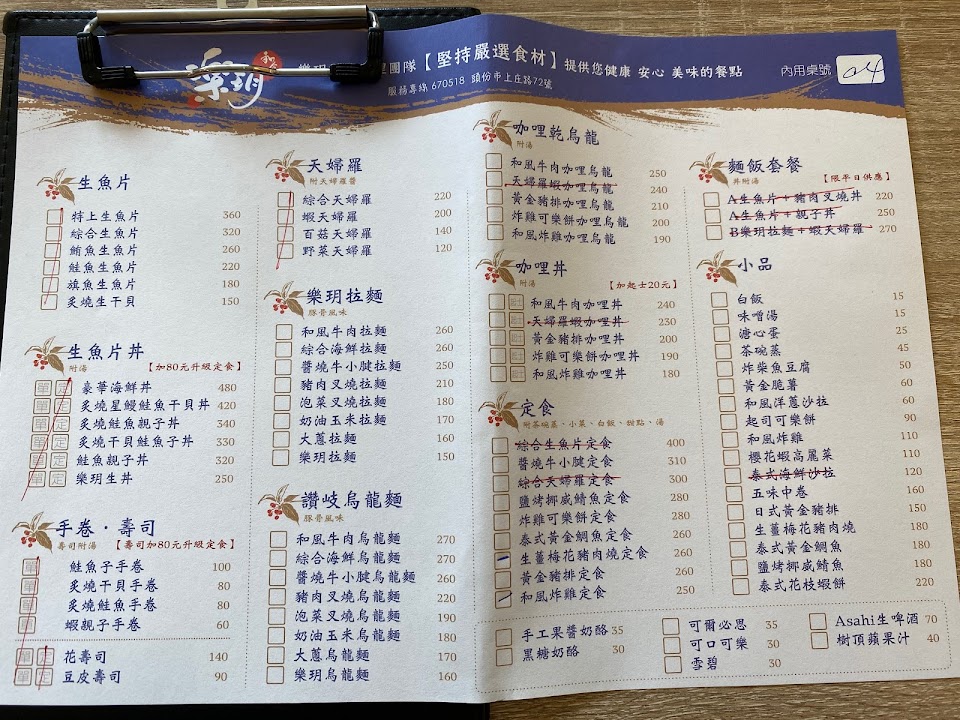 樂玥
堅持嚴選食材】提供您健康 安心 美味的餐點
團隊【
服務專線 670518 頭份市上庄路72號
內用桌號 04
生魚片
特上生魚片 360
綜合生魚片 320
鮪魚生魚片 260
鮭魚生魚片 220
旗魚生魚片 180
炙燒生干貝 150
生魚片丼
附湯 【加80元升級定食】
單 定 豪華海鮮丼 480
單 定 炙燒星鰻鮭魚干貝丼 420
單 定 炙燒鮭魚親子丼 340
單 定 炙燒干貝鮭魚子丼 330
單 定 鮭魚親子丼 320
單 定 樂玥生丼 250
手卷·壽司
壽司附湯 【壽司加80元升級定食】
單 鮭魚子手卷 100
單 炙燒干貝手卷 80
單 炙燒鮭魚手卷 80
單 蝦親子手卷 60
單 定 花壽司 140
單 定 豆皮壽司 90
天婦羅
附天婦羅醬
綜合天婦羅 220
蝦天婦羅 200
百菇天婦羅 140
野菜天婦羅 120
樂玥拉麵
豚骨風味
和風牛肉拉麵 260
綜合海鮮拉麵 260
醬燒牛小腱拉麵 250
豬肉叉燒拉麵 210
泡菜叉燒拉麵 180
奶油玉米拉麵 170
大蔥拉麵 160
樂玥拉麵 150
讚岐烏龍麵
豚骨風味
和風牛肉烏龍麵 270
綜合海鮮烏龍麵 270
醬燒牛小腱烏龍麵 260
豬肉叉燒烏龍麵 220
泡菜叉燒烏龍麵 190
奶油玉米烏龍麵 180
大蔥烏龍麵 170
樂玥烏龍麵 160
咖哩乾烏龍
附湯
和風牛肉咖哩烏龍 250
天婦羅蝦咖哩烏龍 240
黃金豬排咖哩烏龍 210
炸雞可樂餅咖哩烏龍 200
和風炸雞咖哩烏龍 190
咖哩丼
附湯 【加起士20元】
和風牛肉咖哩丼 240
天婦羅蝦咖哩丼 230
黃金豬排咖哩丼 200
炸雞可樂餅咖哩丼 190
和風炸雞咖哩丼 180
定食
附茶碗蒸、小菜、白飯、甜點、湯
綜合生魚片定食 400
醬燒牛小腱定食 310
綜合天婦羅定食 300
鹽烤挪威鯖魚定食 280
炸雞可樂餅定食 280
泰式黃金鯛魚定食 260
生薑梅花豬肉燒定食 260
黃金豬排定食 260
和風炸雞定食 250
麵飯套餐
丼附湯 【限平日供應】
A生魚片+豬肉叉燒丼 220
A生魚片+親子丼 250
B樂玥拉麵+蝦天婦羅 270
小品
白飯 15
味噌湯 15
溏心蛋 25
茶碗蒸 45
炸柴魚豆腐 50
黃金脆薯 60
和風洋蔥沙拉 60
起司可樂餅 90
和風炸雞 110
櫻花蝦高麗菜 110
泰式海鮮沙拉 120
五味中卷 160
日式黃金豬排 150
生薑梅花豬肉燒 180
泰式黃金鯛魚 180
鹽烤挪威鯖魚 180
泰式花枝蝦餅 220
手工果醬奶酪 35
黑糖奶酪 30
可爾必思 35
可口可樂 30
雪碧 30
Asahi生啤酒 70
樹頂蘋果汁 40